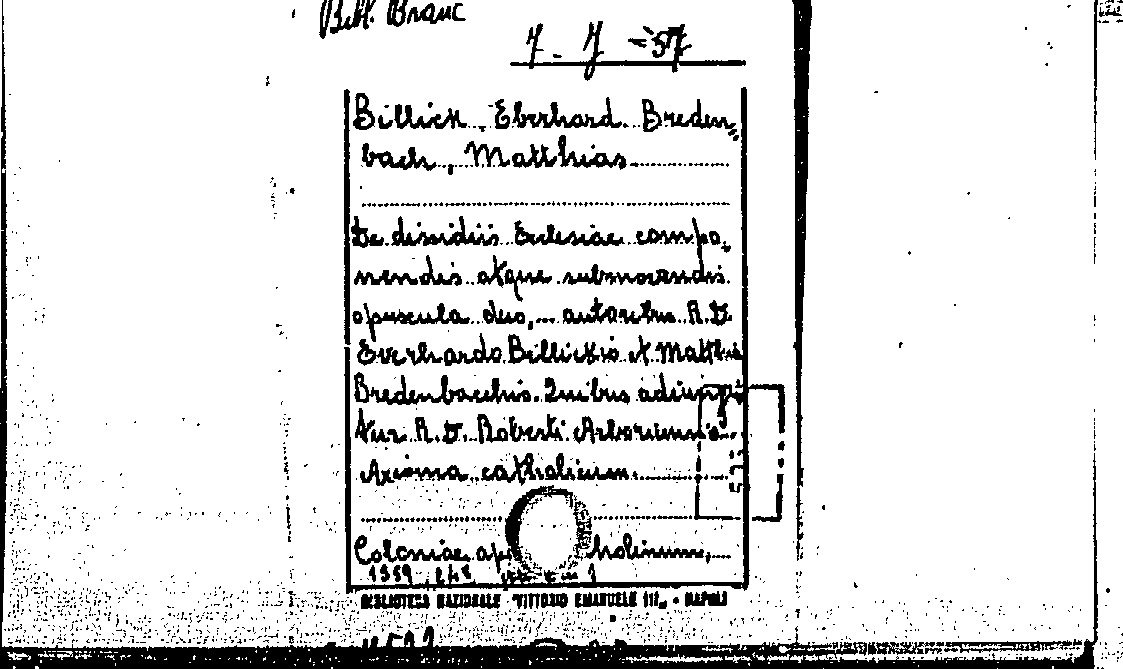 Bibl. Branc
7-J-57
Billick, Eberhard. Breden=
bach, Matthias
De dissidiis Ecclesiae compo,
nendis atque submovendis
opuscula duo,... autoribus R.D.
Everhardo Billickio et Matthia
Bredenbachio. Quibus adiungi
tur R. D. Roberti Arboricensis
Axioma catholicum
Coloniae ap holinum,
1559
BIBLIOTECA NAZIONALE "VITTORIO EMANUELE III" - NAPOLI